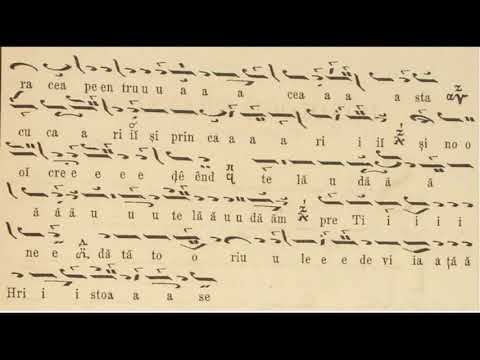 ra cea pe en tru u u a a a cea a a a sta
cu ca a ri iĭ și prin ca a a a ri i iĭ și no o
oĭ cre e e e de ênd te lă u dă ă ă
ă ă ă u u u te lă ă u u dă ăm pre Ti i i i
ne e dă tă to o riu u le e e de vi ia a ță ă
Hri i i stoa a a se